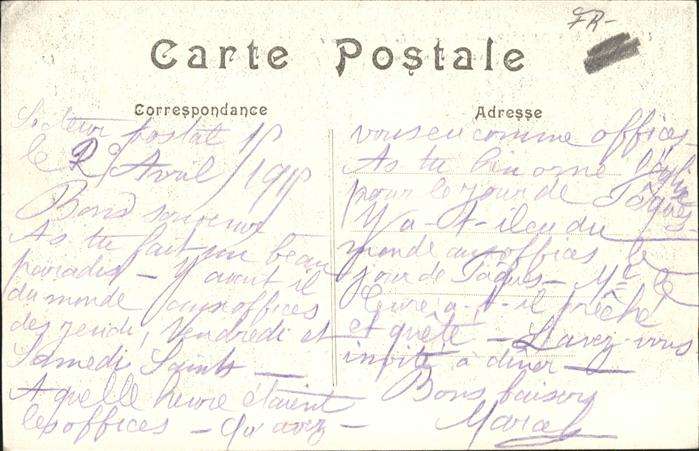 FR-
Carte Postale
Correspondance
Adresse
Secteur postal
le 2 Avril 1915
Bons souvenir
As tu fait un beau
paradis - Y avait il
du monde aux offices
des jeudi, Vendredi et
Samedi Saints -
A quelle heure étaient
les offices - Qu'avez-
vous eu comme offices-
As tu bien orné l'église
pour le jour de Pâques-
Y a-t-il eu du
monde aux offices le
jour de Pâques - Mr le
Curé a-t-il prêché
et quêté - L'avez-vous
invité à dîner -
Bons baisers
Marcel